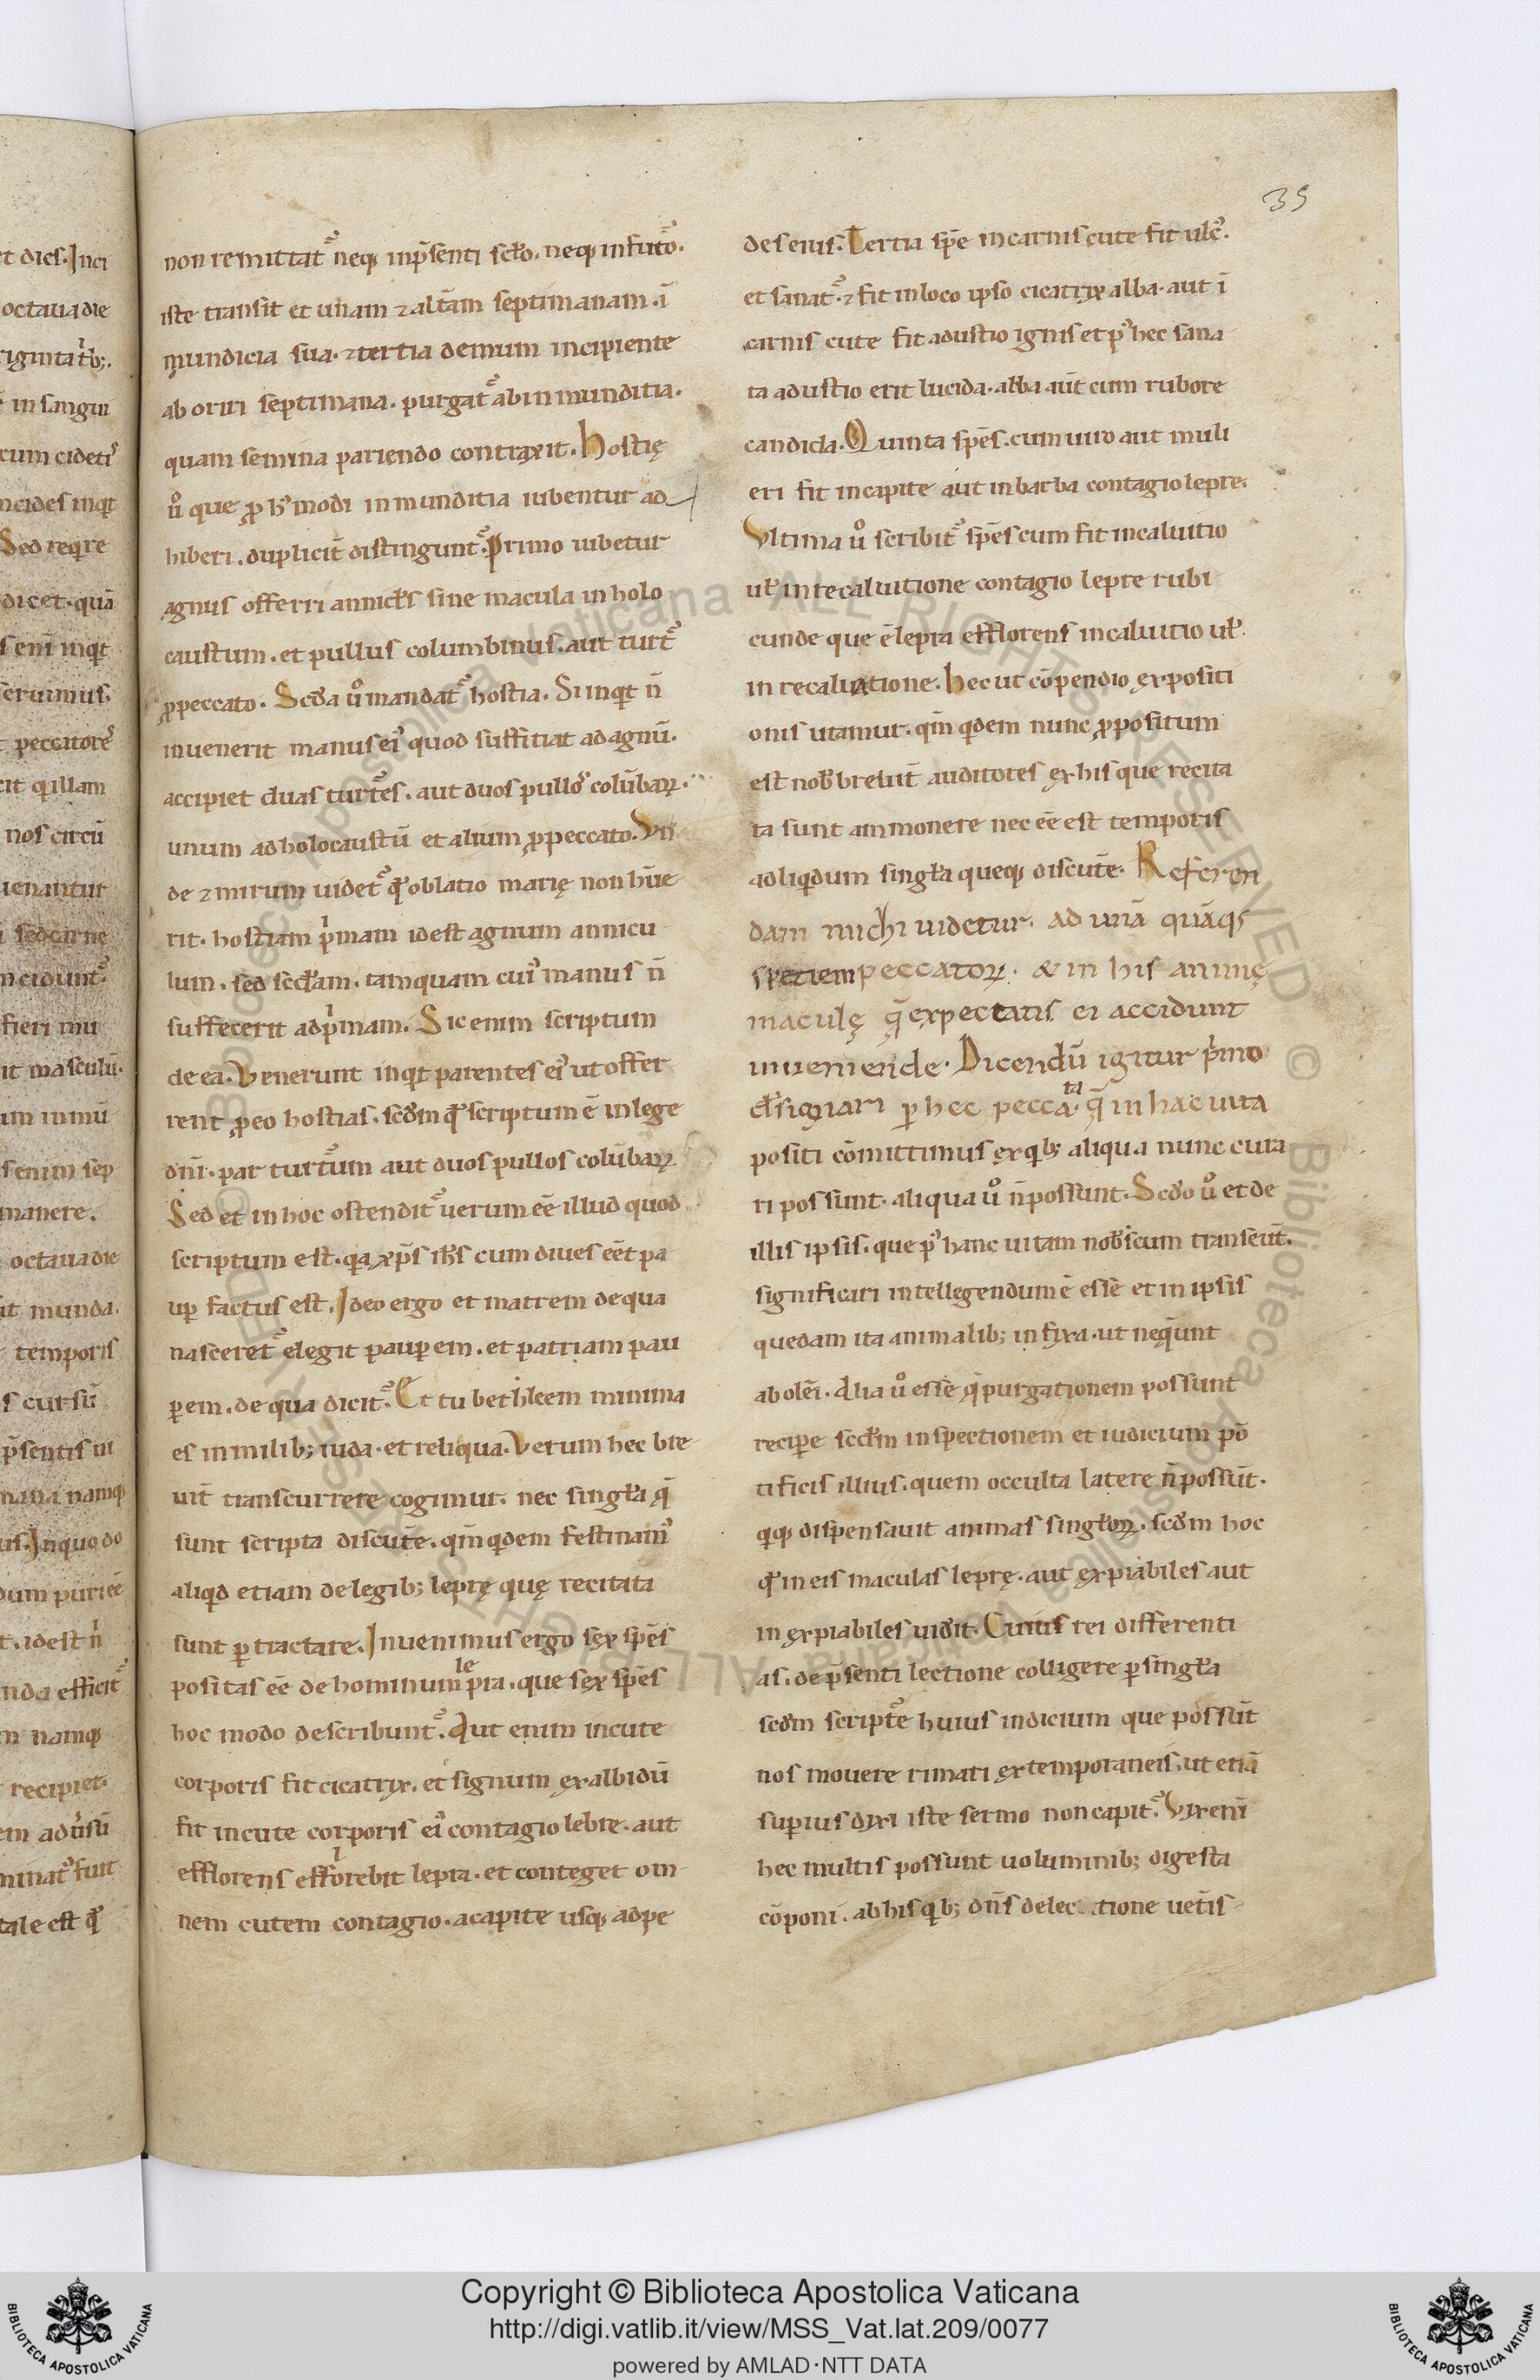 35
non remittat᷑ neq; inp̄senti sc̄lo. neq; infuto᷑.
iste transit et unam ⁊ alt̄am septimanam. ī
mundicia sua. ⁊ tertia demum incipiente
ab oriri septimana. purgat᷑ abinmunditia.
quam femina pariendo contraxit. Hostię
u̾ que ꝓ h᷒modi inmunditia iubentur ad
hiberi. duplicit̄ distingunt᷑. Primo iubetur
agnus offerri annicłs sine macula in holo
caustum. et pullus columbinus. aut turt᷑
ꝓpeccato. Scda u̾ mandat᷑ hostia. Si inqt n̄
inuenerit manus ei᷒ quod suffitiat ad agnū.
accipiet duas turt᷑es. aut duos pullo᷒ colūbaꝝ.
unum ad holocaustū et alium ꝓpeccato. Vn
de ⁊ mirum uidet᷑ qd̾ oblatio marię non hūe
rit. hostiam pͥmam idest agnum annicu
lum. sed secd̄am. tamquam cui᷒ manus n̄
suffecerit adpͥmam. Sic enim scriptum
de ea. Venerunt inqt parentes ei᷒ ut offer
rent ꝓeo hostias. scd̄m qd̾ scriptum ē inlege
dn̄i. par turt᷑um aut duos pullos colūbaꝝ
Sed et in hoc ostendit᷑ uerum eē illud quod
scriptum est. qa xp̄s ih̄s cum diues eēt pa
uꝑ factus est. Ideo ergo et matrem dequa
nasceret᷑ elegit pauꝑem. et patriam pau
ꝑem. de qua dicit᷑. Et tu bethleem minima
es in milib; iuda. et reliqua. Verum hec bre
uit̄ transcurrere cogimur. nec singła q̄
sunt scripta discut̄e. qm̄ qdem festinam᷒
aliqd etiam delegib; leprę quę recitata
sunt ꝑtractare. Inuenimus ergo sex sp̄es
positas eē de hominum lepra. que sex sp̄es
hoc modo describunt᷑. Aut enim incute
corporis fit cicatrix. et signum exalbidū
fit incute corporis ei᷒ contagio lebre. aut
efflorens efflorebit lepra. et conteget om
nem cutem contagio. acapite usq; adpe
des eius. Tertia sp̄e incarnis cute fit ulc᷒.
et sanat᷑. ⁊ fit inloco ipso cicatrix alba. aut ī
carnis cute fit adustio ignis et p᷒ hec sana
ta adustio erit lucida. alba aut̄ cum rubore
candida. Quinta sp̄es. cum uiro aut muli
eri fit incapite aut inbarba contagio lepre.
Vltima u̾ scribit᷑ sp̄es cum fit incaluitio
uł in recaluitione contagio lepre rubi
cunde que ē lepra efflorens incaluitio uł
in recaluatione. Hec ut cōpendio expositi
onis utamur. qm̄ qdem nunc ꝓpositum
est nob̄ breuit̄ auditores ex his que recita
ta sunt ammonere nec eē est temporis
adliqdum singła queq; discut̄e. Referen
dam michi uidetur. ad unā quāq;
spetiem peccatoꝝ. & in his animę
maculę q̄ expeccatis ei accidunt
inueniende. Dicendū igitur pͥmo
designari ꝑ hec peccata. q̄ in hac uita
positi cōmittimus exqb; aliqua nunc cura
ri possunt. aliqua u̾ n̄possunt. Scdo u̾ et de
illis ipsis. que p᷒ hanc uitam nob̄scum transeūt.
significari intellegendum ē esse et in ipsis
quedam ita animalib; infixa. ut neq̄unt
abolēi. Alia u̾ esse q̄ purgationem possunt
reciꝑe secd̄m inspectionem et iudicium pō
tificis illius. quem occulta latere n̄ possūt.
qiq; dispensauit animas singłoꝝ. scd̄m hoc
qd̾ in eis maculas leprę. aut expiabiles aut
inexpiabiles uidit. Cuius rei differenti
as. de p̄senti lectione colligere ꝑsingła
scd̄m script᷑e huius indicium que possūt
nos mouere rimari extemporaneis. ut etiā
suꝑius dixi iste sermo non capit᷑. Vix enī
hec multis possunt uoluminib; digesta
cōponi. ab his qb; dn̄s delec tione uet̄is
Copyright © Biblioteca Apostolica Vaticana
http://digi.vatlib.it/view/MSS_Vat.lat.209/0077
powered by AMLAD·NTT DATA